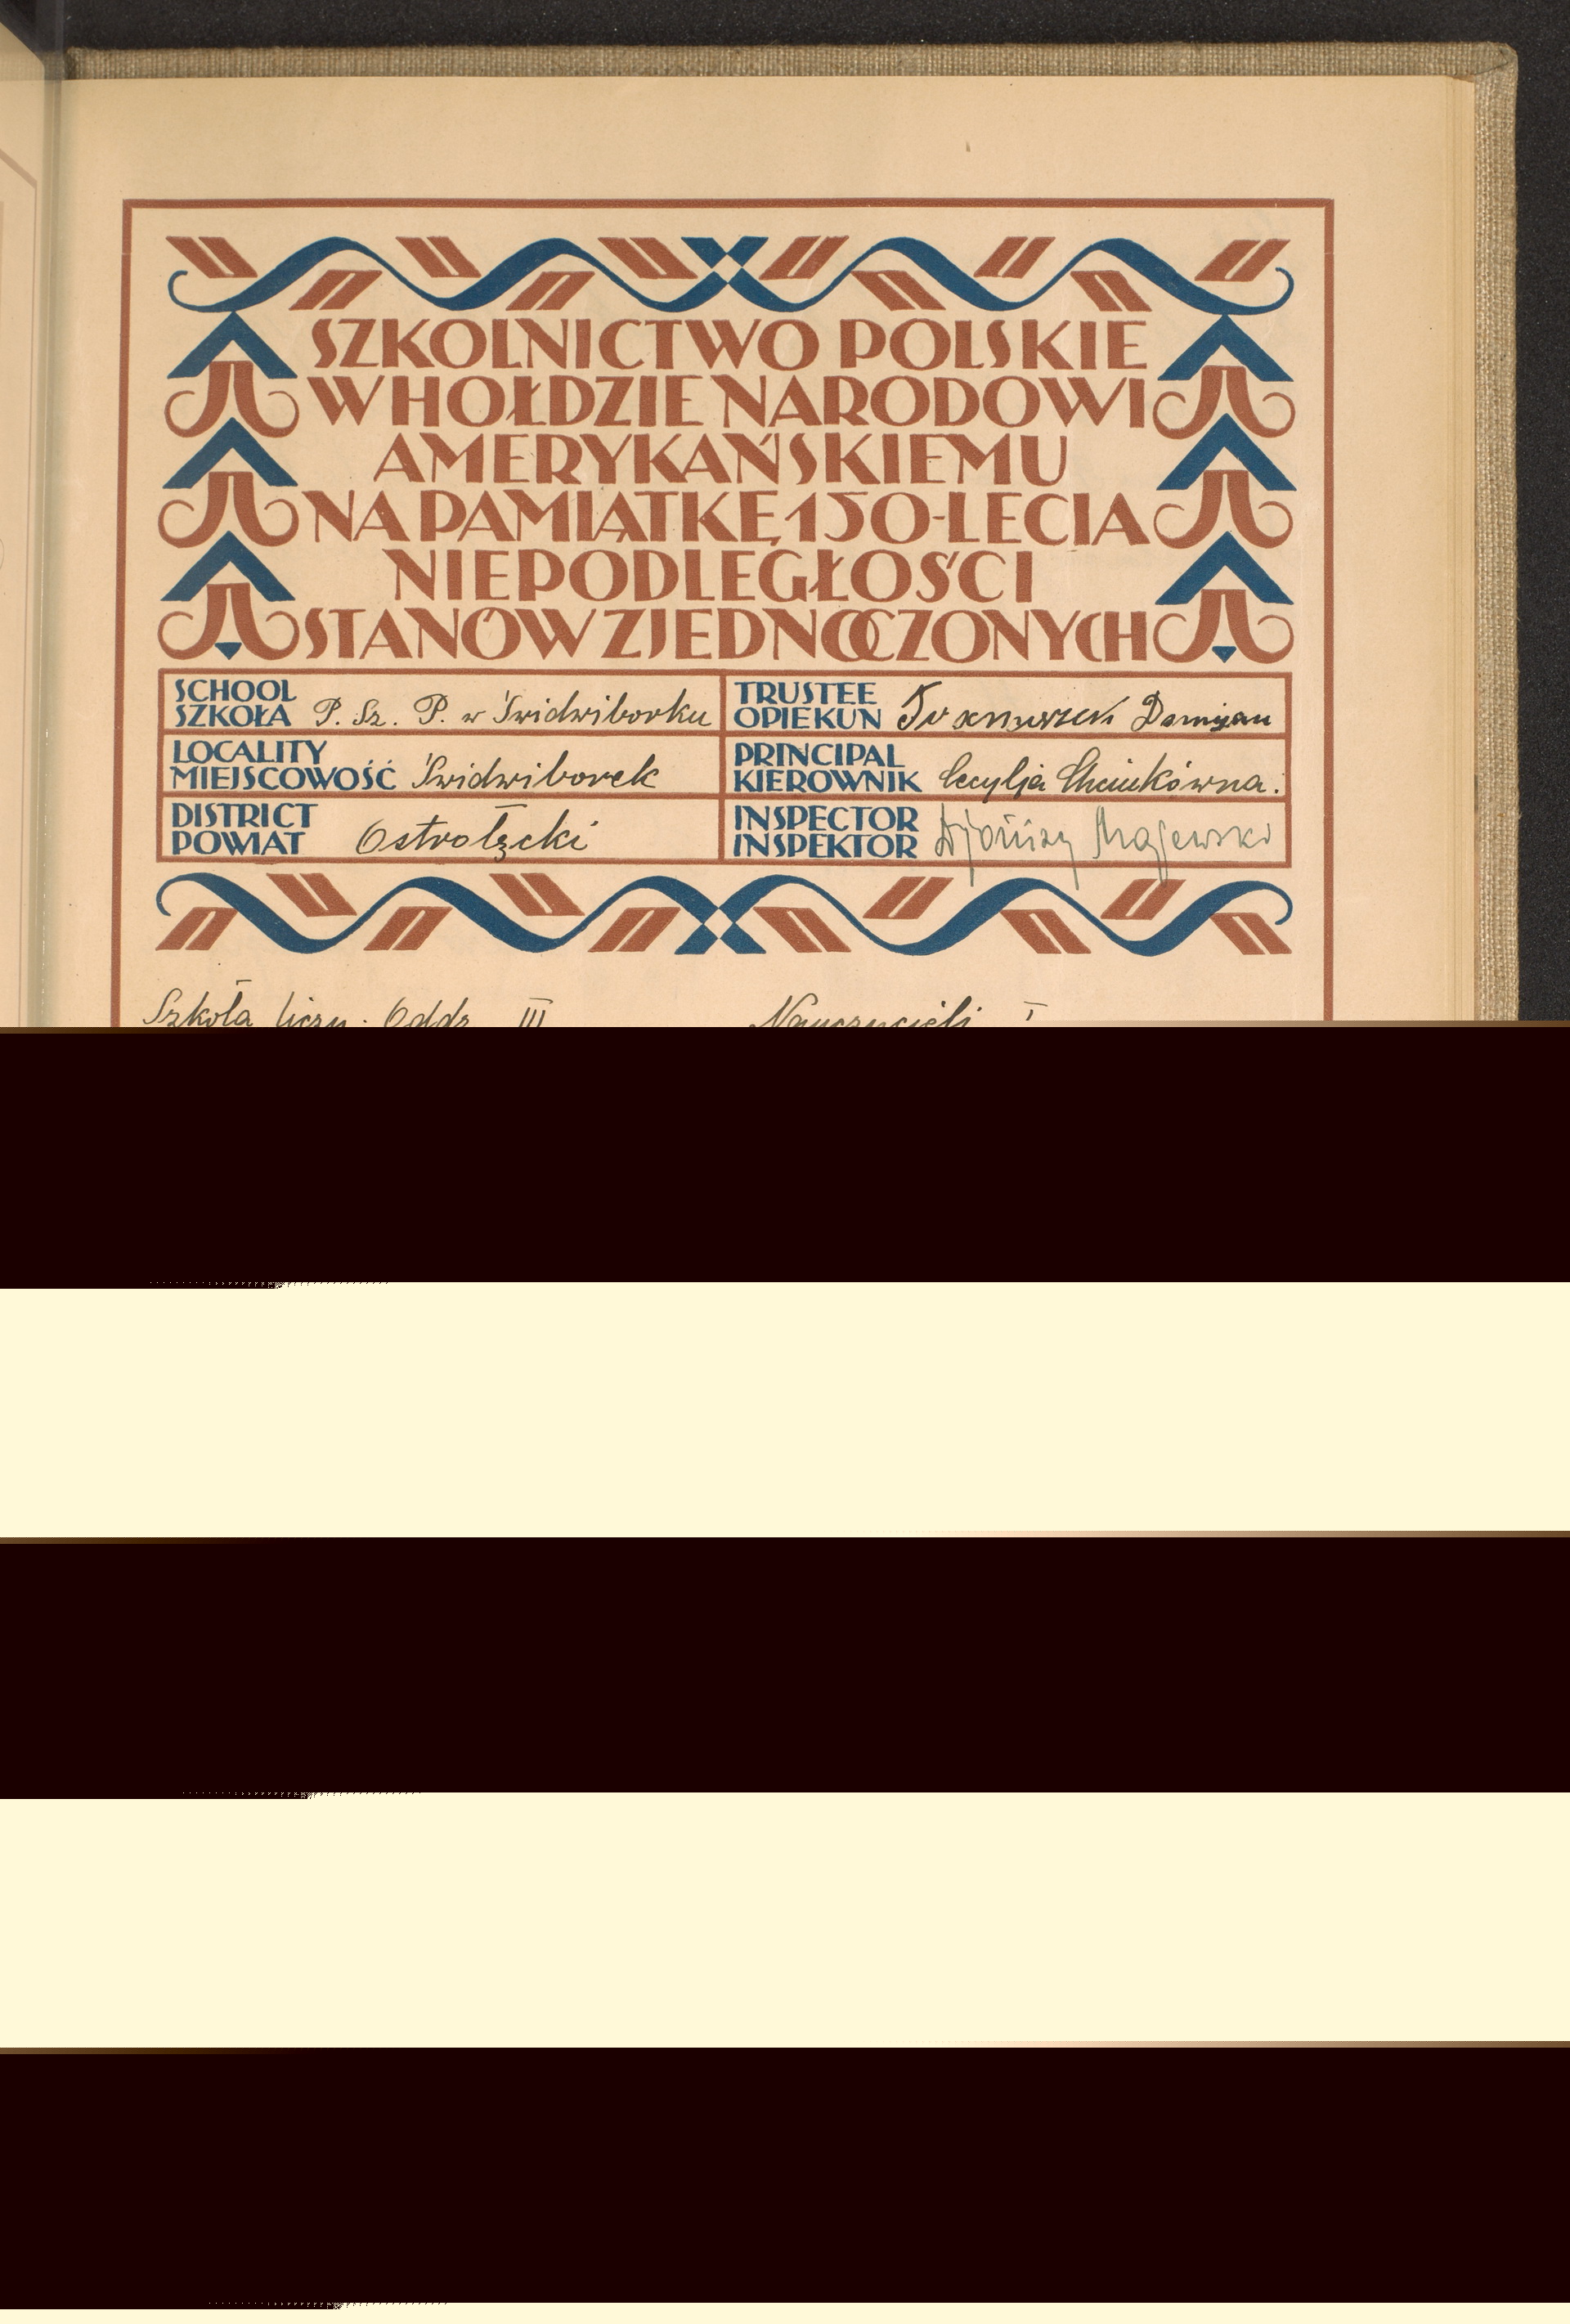 SZKOLNICTWO POLSKIE
W HOŁDZIE NARODOWI
AMERYKAŃSKIEMU
NA PAMIĄTKĘ 150-LECIA
NIEPODLEGŁOŚCI
STANÓW ZJEDNOCZONYCH
SCHOOL
SZKOŁA P. Sz. P. w Świdwiborku
LOCALITY
MIEJSCOWOŚĆ Świdwiborek
DISTRICT
POWIAT Ostrołęcki
TRUSTEE
OPIEKUN Damijan
PRINCIPAL
KIEROWNIK Cecylja
INSPECTOR
INSPEKTOR Majewski
Szkoła liczy: Oddz. III Nauczycieli I